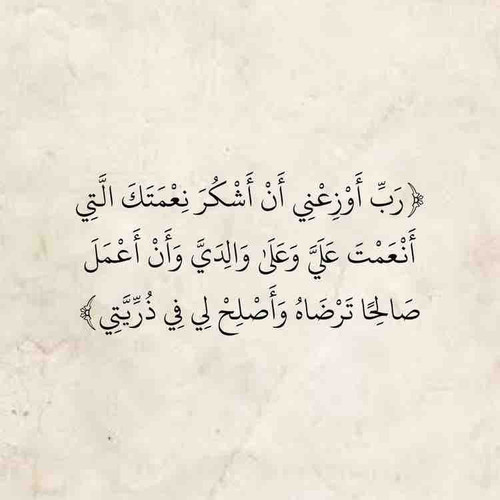 ﴿رَبِّ أَوْزِعْنِي أَنْ أَشْكُرَ نِعْمَتَكَ الَّتِي
أَنْعَمْتَ عَلَيَّ وَعَلَىٰ وَالِدَيَّ وَأَنْ أَعْمَلَ
صَالِحًا تَرْضَاهُ وَأَصْلِحْ لِي فِي ذُرِّيَّتِي﴾